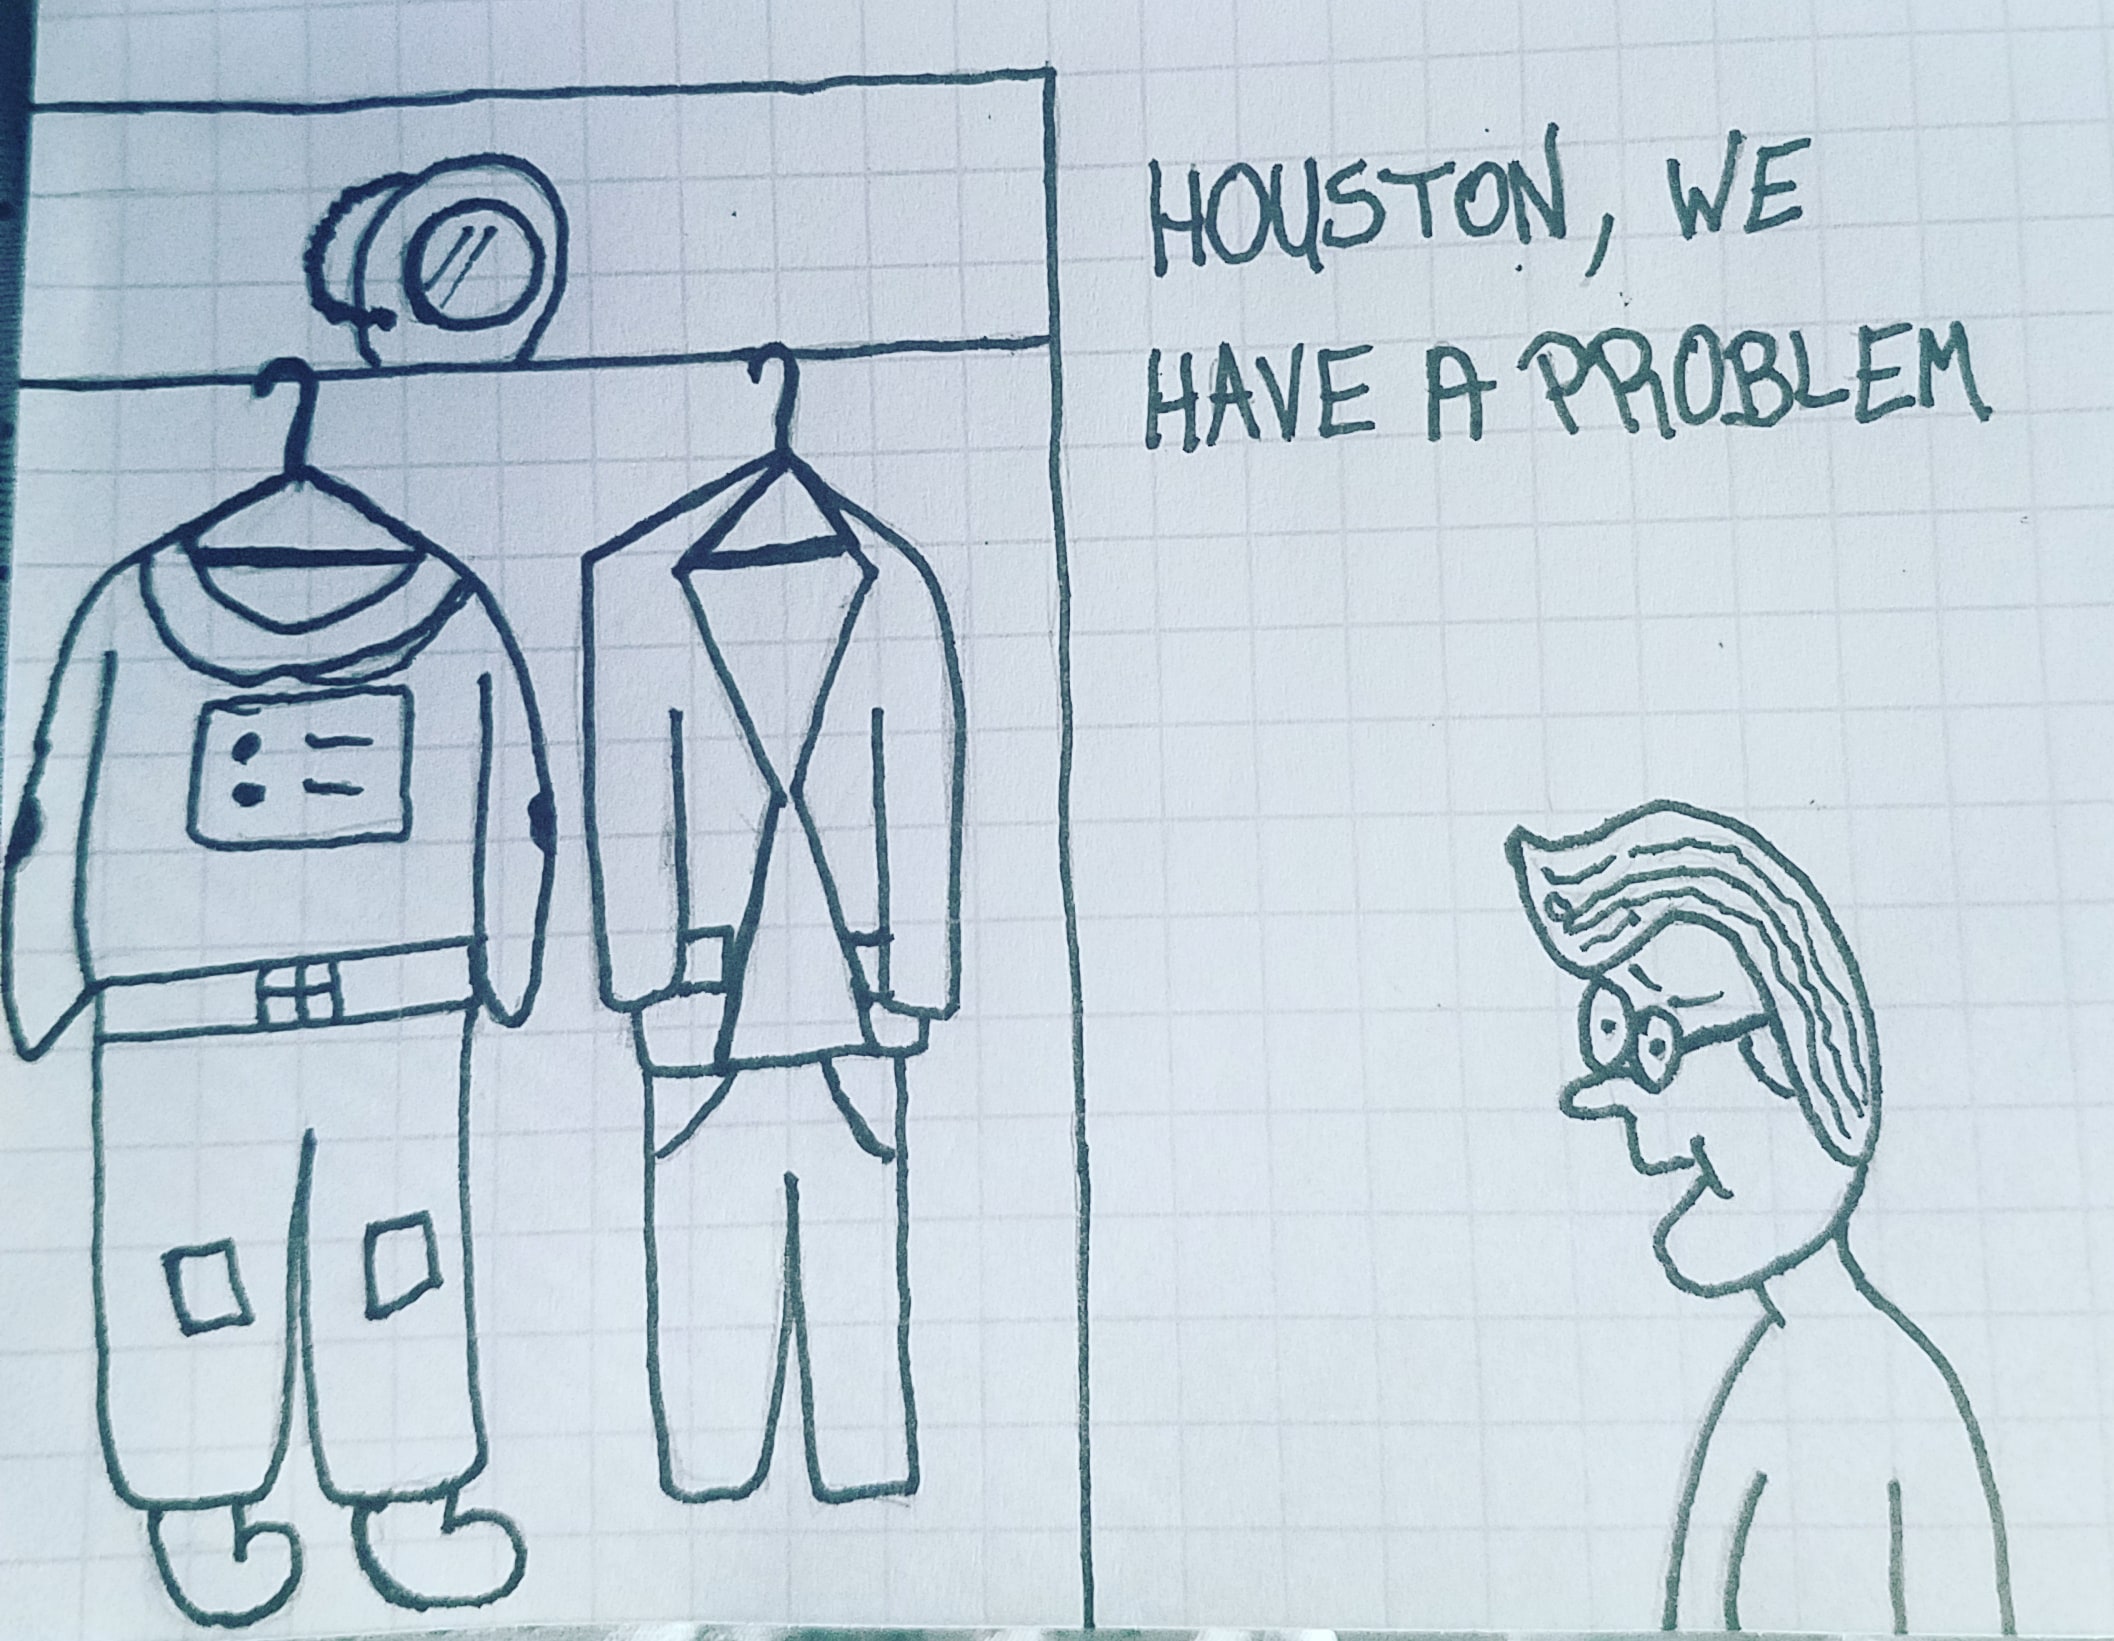 HOUSTON, WE
HAVE A PROBLEM